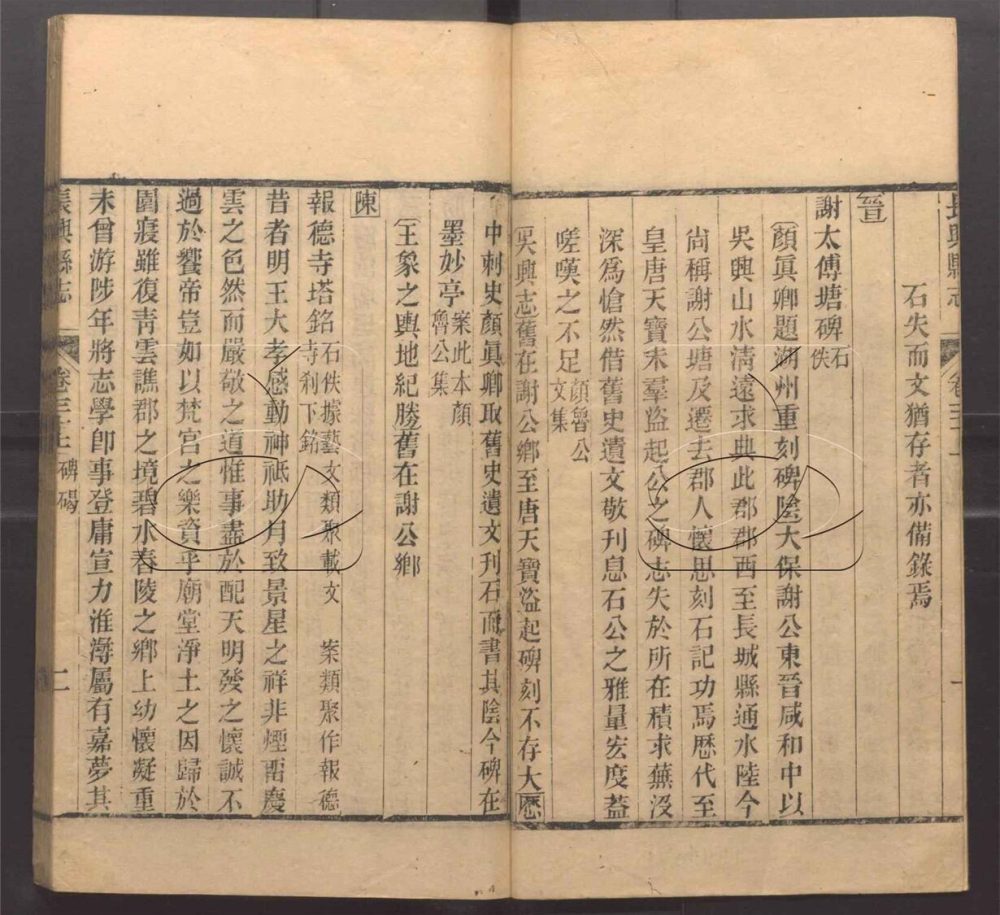 長興縣志 卷三十 一
石失而文猶存者亦備錄焉
晉
謝太傅塘碑石佚
顏眞卿題湖州重刻碑陰大保謝公東晉咸和中以
吳興山水清遠求典此郡郡西至長城縣通水陸今
尚稱謝公塘及遷去郡人懷思刻石記功焉歷代至
皇唐天寶末羣盜起公之碑志失於所在積求蕪沒
深爲愴然借舊史遺文敬刊息石公之雅量宏度蓋
嗟嘆之不足顏魯公文集
吳興志舊在謝公鄉至唐天寶盜起碑刻不存大歷
中刺史顏眞卿取舊史遺文刊石而書其陰今碑在
墨妙亭案此本顏魯公集
王象之輿地紀勝舊在謝公鄉
陳
報德寺塔銘石佚據藝文類聚載文 案類聚作報德寺刹下銘
昔者明王大孝感動神祗助月致景星之祥非煙畱慶
雲之色然而嚴敬之道惟事盡於配天明發之懷誠不
過於饗帝豈如以梵宮之樂資乎廟堂淨土之因歸於
園寢雖復靑雲譙郡之境碧水舂陵之鄉上幼懷凝重
未曾游陟年將志學卽事登庸宣力淮海屬有嘉夢其
長興縣志 卷三十上 碑碣 二